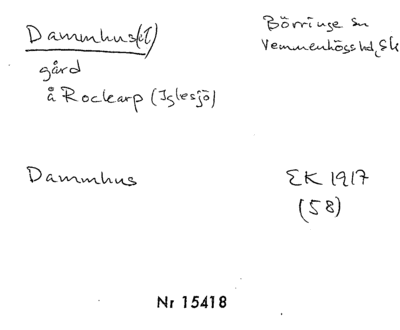 Dammhus(et)
Börringe sn
Vemmenhögs hd, Sk
gård
å Rockarp (Iglesjö)
Dammhus
EK 1917
(58)
Nr 15418